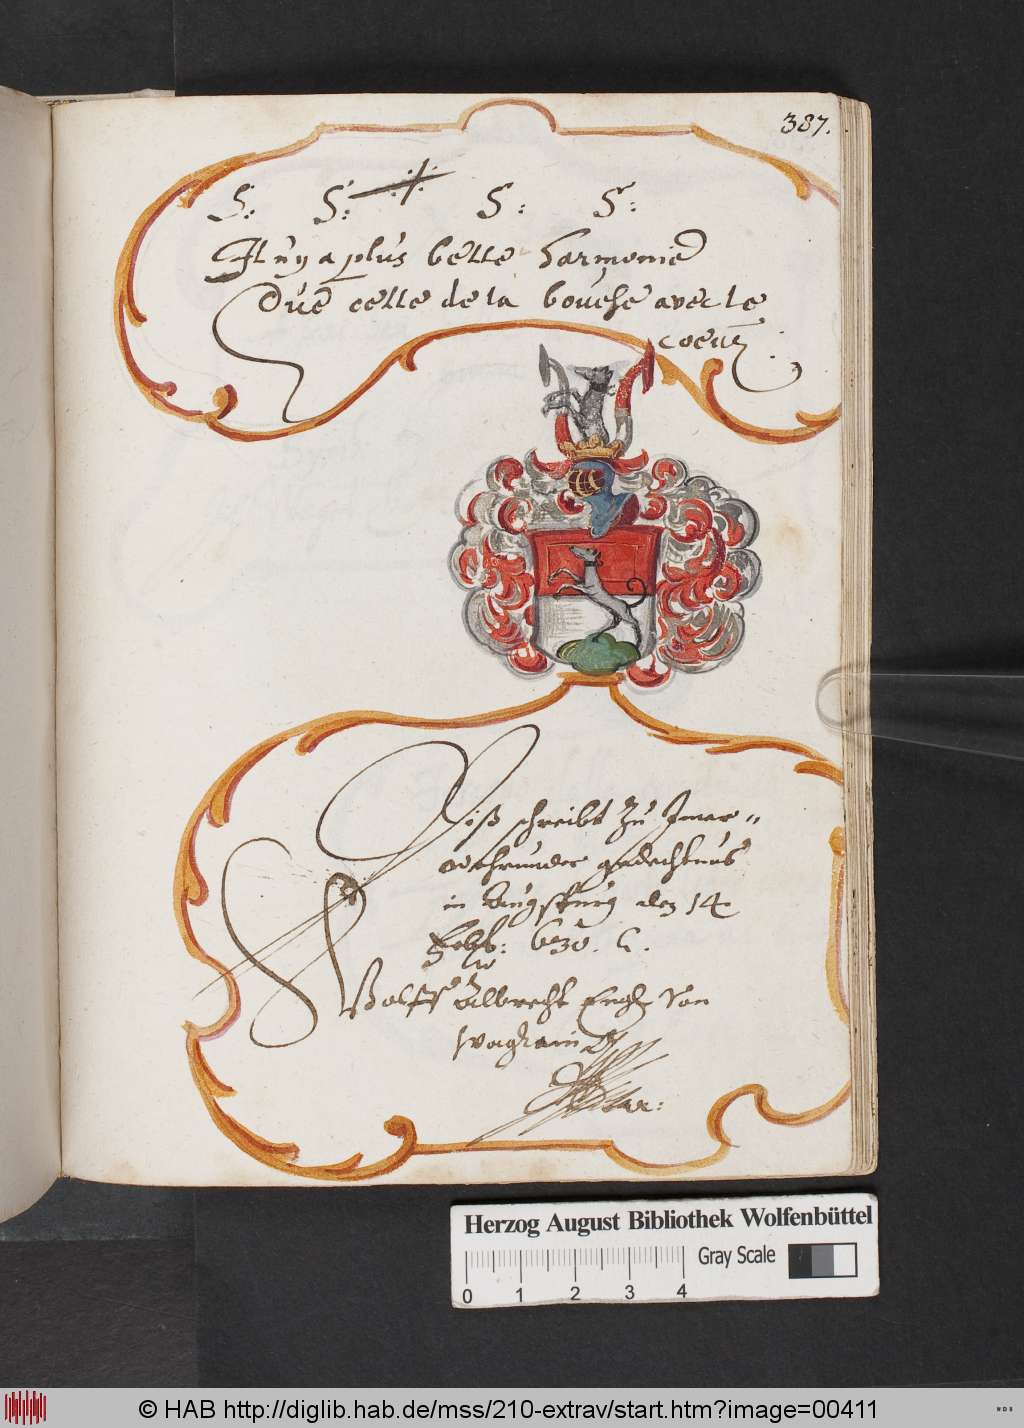 387.
S: S: S: S:
Il n'y a plus belle harmonie
Que celle de la bouche avec le
coeur
Diß schreibt zu Immer=
wehrunder gedechtnus
in Augspurg den 14
Feb: 630.
Wolff Albrecht Engl von
Wagrain
Herzog August Bibliothek Wolfenbüttel
Gray Scale
0 1 2 3 4
© HAB http://diglib.hab.de/mss/210-extrav/start.htm?image=00411